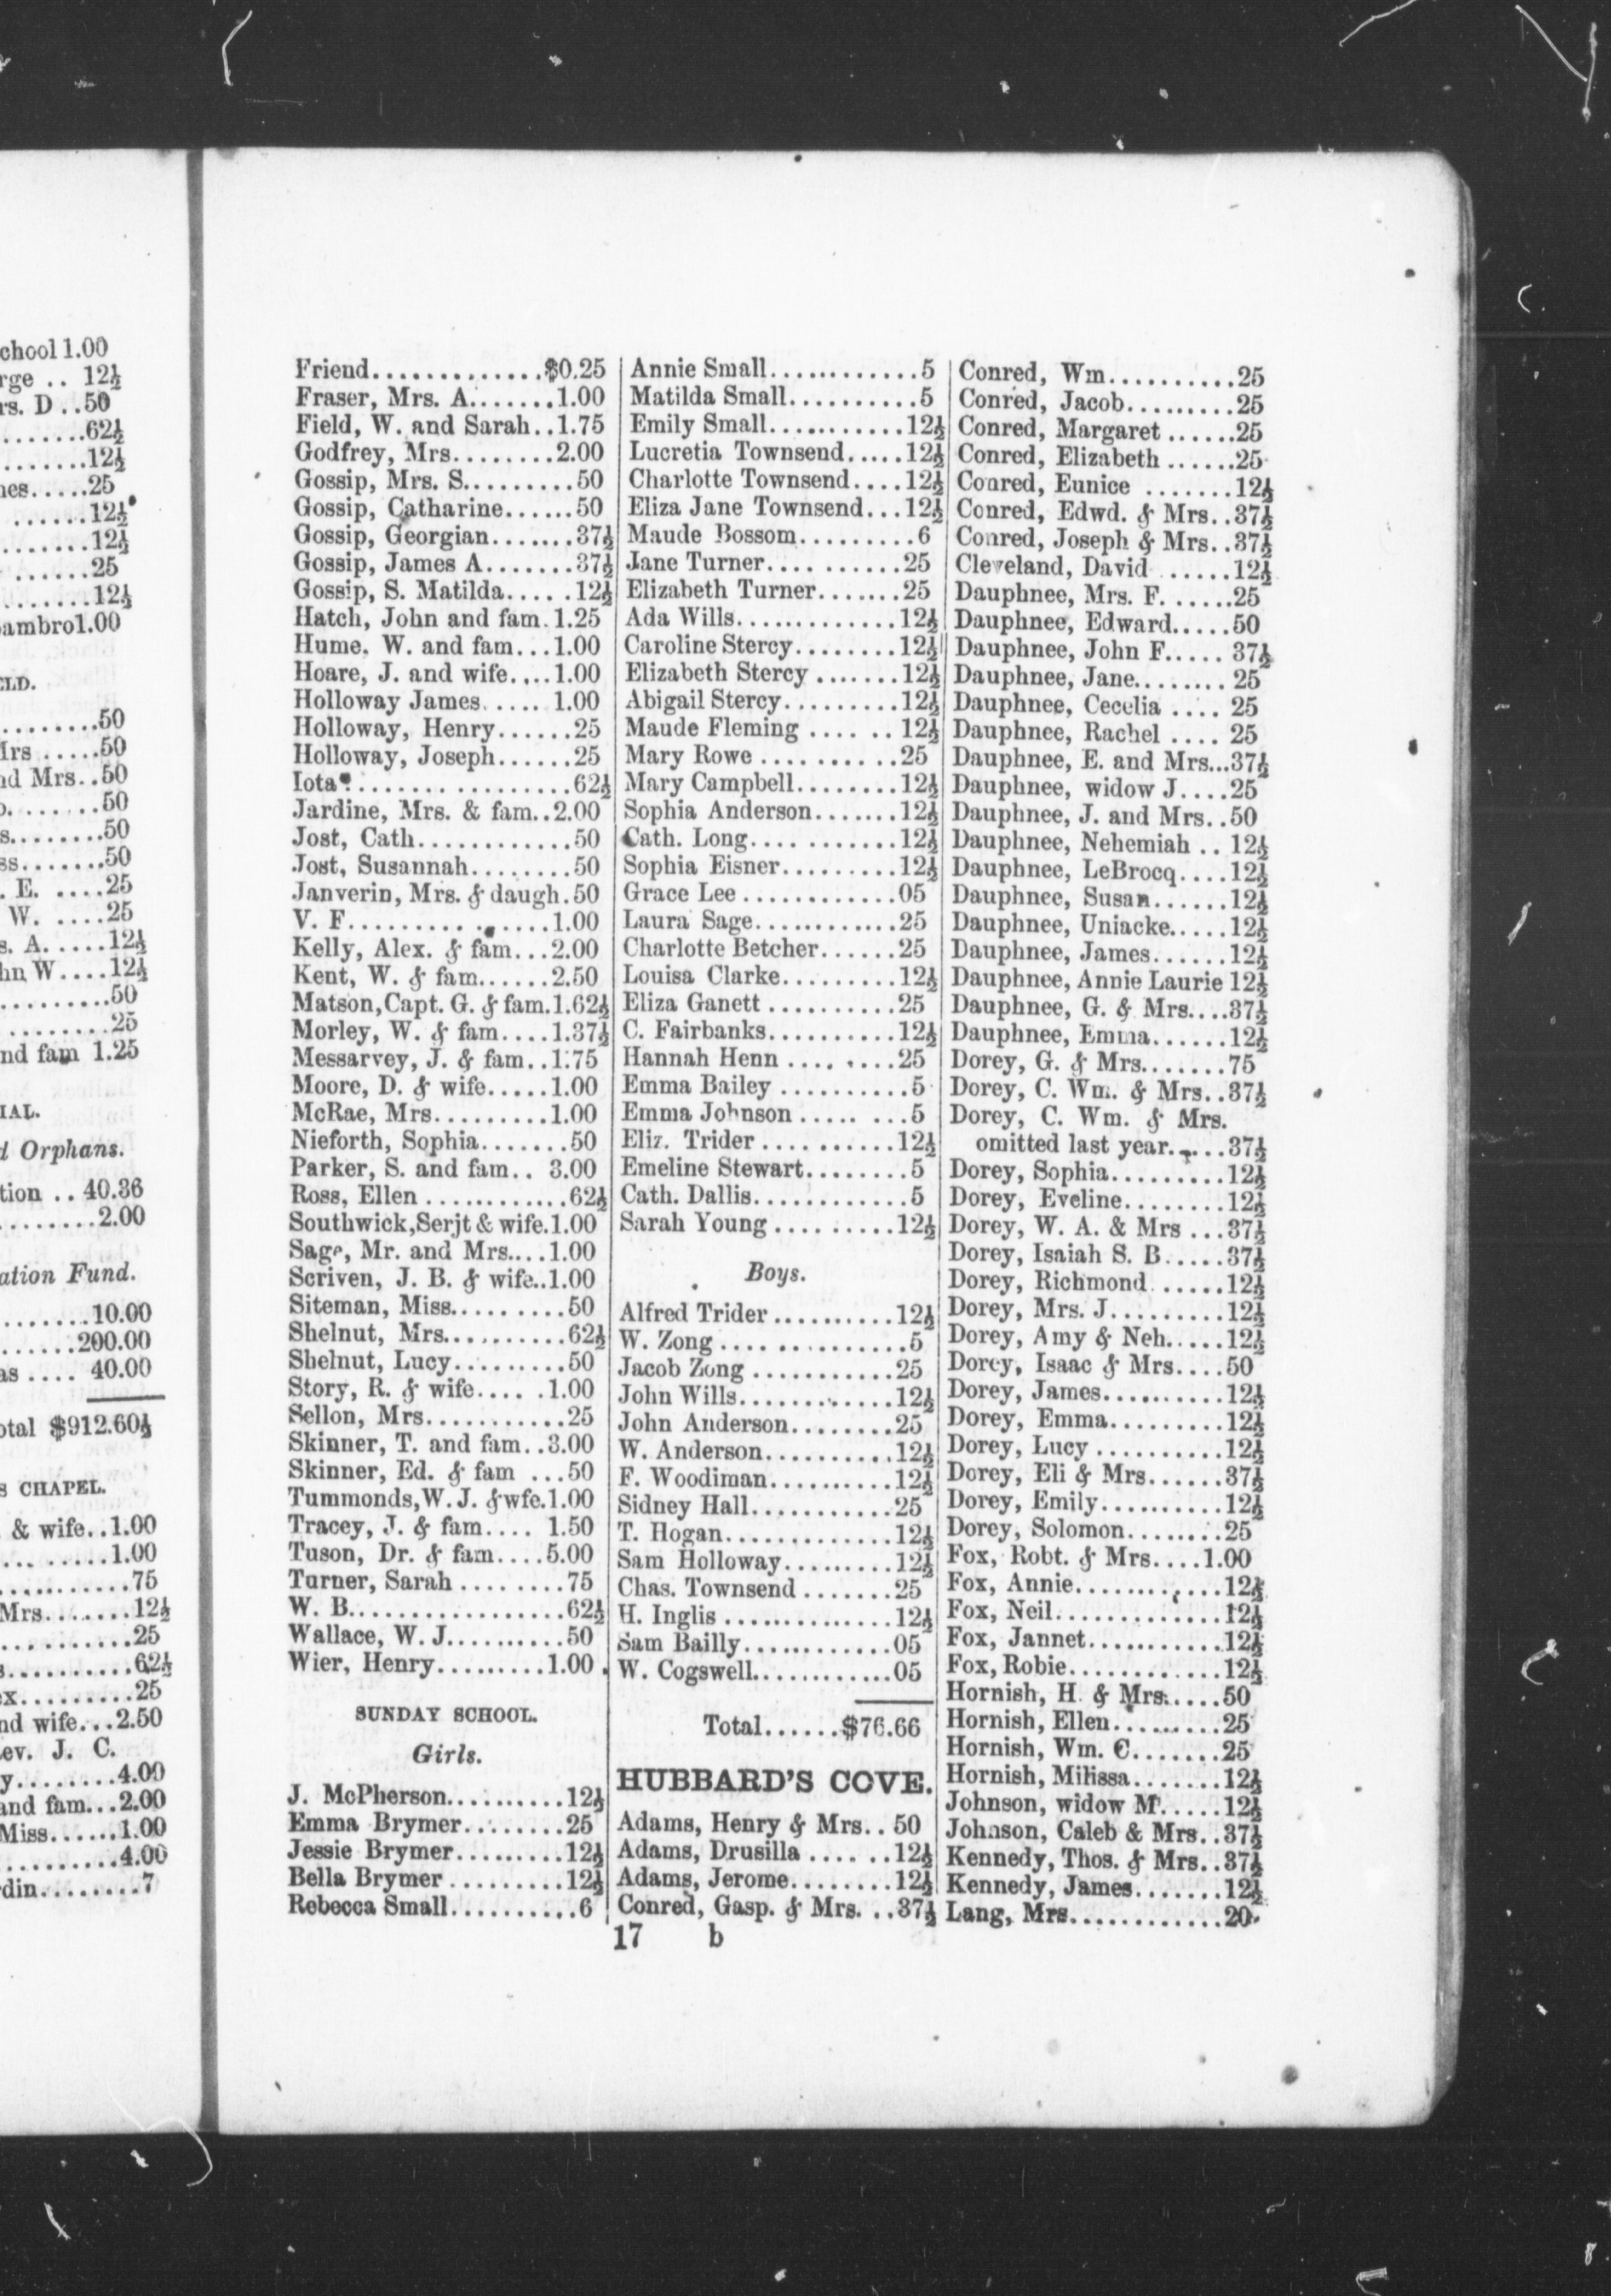 chool 1.00
rge .. 12½
rs. D ..50
........62½
........12½
nes.....25
......12½
........12½
......25
........12½
ambro1.00
ELD.
........50
Mrs .....50
nd Mrs..50
........50
s........50
ss.......50
. E. ....25
W. ....25
s. A.....12½
hn W....12½
.........50
........25
nd fam 1.25
IAL.
d Orphans.
tion .. 40.36
........2.00
ation Fund.
.......10.00
......200.00
as .... 40.00
otal $912.60½
S CHAPEL.
& wife..1.00
.........1.00
...........75
Mrs.......12½
...........25
s..........62½
ex.........25
nd wife...2.50
ev. J. C.
y........4.00
and fam...2.00
Miss......1.00
..........4.00
din........7
Friend..............$0.25
Fraser, Mrs. A.......1.00
Field, W. and Sarah..1.75
Godfrey, Mrs........2.00
Gossip, Mrs. S.........50
Gossip, Catharine......50
Gossip, Georgian.......37½
Gossip, James A.......37½
Gossip, S. Matilda.....12½
Hatch, John and fam.1.25
Hume. W. and fam...1.00
Hoare, J. and wife....1.00
Holloway James...... 1.00
Holloway, Henry......25
Holloway, Joseph......25
Iota..................62½
Jardine, Mrs. & fam..2.00
Jost, Cath............50
Jost, Susannah........50
Janverin, Mrs. & daugh.50
V. F.................1.00
Kelly, Alex. & fam...2.00
Kent, W. & fam......2.50
Matson,Capt. G. & fam.1.62½
Morley, W. & fam....1.37½
Messarvey, J. & fam..1.75
Moore, D. & wife.....1.00
McRae, Mrs.........1.00
Nieforth, Sophia.......50
Parker, S. and fam.. 3.00
Ross, Ellen ............62½
Southwick,Serjt & wife.1.00
Sage, Mr. and Mrs....1.00
Scriven, J. B. & wife..1.00
Siteman, Miss.........50
Shelnut, Mrs..........62½
Shelnut, Lucy.........50
Story, R. & wife..... .1.00
Sellon, Mrs...........25
Skinner, T. and fam..3.00
Skinner, Ed. & fam ...50
Tummonds,W. J. &wfe.1.00
Tracey, J. & fam.... 1.50
Tuson, Dr. & fam....5.00
Turner, Sarah .........75
W. B..................62½
Wallace, W. J..........50
Wier, Henry.........1.00
SUNDAY SCHOOL.
Girls.
J. McPherson..........12½
Emma Brymer........25
Jessie Brymer.........12½
Bella Brymer .........12½
Rebecca Small..........6
Annie Small............5
Matilda Small..........5
Emily Small...........12½
Lucretia Townsend.....12½
Charlotte Townsend....12½
Eliza Jane Townsend...12½
Maude Bossom.........6
Jane Turner............25
Elizabeth Turner.......25
Ada Wills.............12½
Caroline Stercy........12½
Elizabeth Stercy .......12½
Abigail Stercy.........12½
Maude Fleming .... ..12½
Mary Rowe ...........25
Mary Campbell........12½
Sophia Anderson.......12½
Cath. Long............12½
Sophia Eisner.........12½
Grace Lee.............05
Laura Sage............25
Charlotte Betcher......25
Louisa Clarke.........12½
Eliza Ganett ..........25
C. Fairbanks..........12½
Hannah Henn .........25
Emma Bailey ..........5
Emma Johnson ..... ...5
Eliz. Trider ...........12½
Emeline Stewart........5
Cath. Dallis............5
Sarah Young ..........12½
Boys.
Alfred Trider ..........12½
W. Zong ...............5
Jacob Zong ............25
John Wills.............12½
John Anderson.........25
W. Anderson...........12½
F. Woodiman..........12½
Sidney Hall............25
T. Hogan..............12½
Sam Holloway.........12½
Chas. Townsend .......25
H. Inglis ..............12½
Sam Bailly.............05
W. Cogswell............05
Total......$76.66
HUBBARD'S COVE.
Adams, Henry & Mrs.. 50
Adams, Drusilla ......12½
Adams, Jerome........12½
Conred, Gasp. & Mrs. ..37½
Conred, Wm..........25
Conred, Jacob.........25
Conred, Margaret ......25
Conred, Elizabeth ......25
Conred, Eunice .......12½
Conred, Edwd. & Mrs..37½
Conred, Joseph & Mrs..37½
Cleveland, David ......12½
Dauphnee, Mrs. F......25
Dauphnee, Edward.....50
Dauphnee, John F..... 37½
Dauphnee, Jane........ 25
Dauphnee, Cecelia .... 25
Dauphnee, Rachel .... 25
Dauphnee, E. and Mrs...37½
Dauphnee, widow J....25
Dauphnee, J. and Mrs..50
Dauphnee, Nehemiah .. 12½
Dauphnee, LeBrocq....12½
Dauphnee, Susan......12½
Dauphnee, Uniacke.....12½
Dauphnee, James......12½
Dauphnee, Annie Laurie 12½
Dauphnee, G. & Mrs....37½
Dauphnee, Emma......12½
Dorey, G. & Mrs.......75
Dorey, C. Wm. & Mrs..37½
Dorey, C. Wm. & Mrs.
omitted last year.....37½
Dorey, Sophia.........12½
Dorey, Eveline........12½
Dorey, W. A. & Mrs ...37½
Dorey, Isaiah S. B.....37½
Dorey, Richmond ......12½
Dorey, Mrs. J..........12½
Dorey, Amy & Neh.....12½
Dorey, Isaac & Mrs....50
Dorey, James..........12½
Dorey, Emma.........12½
Dorey, Lucy ..........12½
Dorey, Eli & Mrs......37½
Dorey, Emily..........12½
Dorey, Solomon........25
Fox, Robt. & Mrs....1.00
Fox, Annie............12½
Fox, Neil..............12½
Fox, Jannet...........12½
Fox, Robie............12½
Hornish, H. & Mrs.....50
Hornish, Ellen.........25
Hornish, Wm. C.......25
Hornish, Milissa.......12½
Johnson, widow M.....12½
Johnson, Caleb & Mrs..37½
Kennedy, Thos. & Mrs..37½
Kennedy, James.......12½
Lang, Mrs............20
17 b